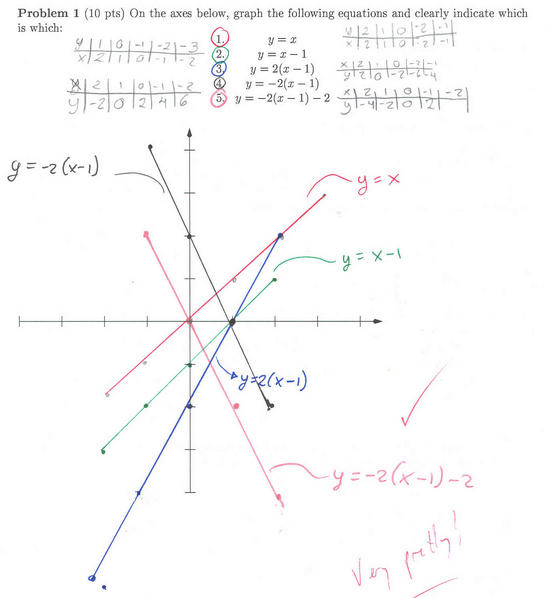 Problem 1 (10 pts) On the axes below, graph the following equations and clearly indicate which
is which:
1. y = x
2. y = x − 1
3. y = 2(x − 1)
4. y = −2(x − 1)
5. y = −2(x − 1) − 2
y 1 0 -1 -2 -3
x 2 1 0 -1 -2
x 2 1 0 -1 -2
y -2 0 2 4 6
y 2 1 0 -2 -1
x 2 1 0 -2 -1
x 2 1 0 -2 -1
y 2 0 -2 -6 -4
x 2 1 0 -1 -2
y -4 -2 0 2
y = -2(x-1)
y = x
y = x-1
y=2(x-1)
y=-2(x-1)-2
Very pretty!